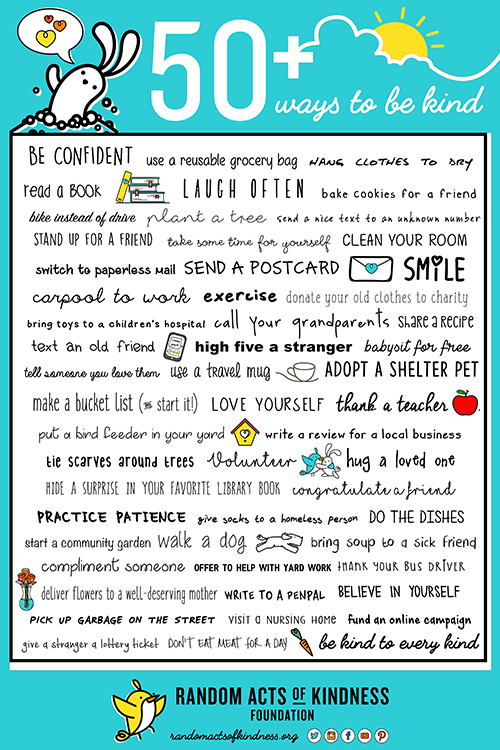 50+
ways to be kind
BE CONFIDENT use a reusable grocery bag HANG CLOTHES TO DRY
read a BOOK LAUGH OFTEN bake cookies for a friend
bike instead of drive plant a tree send a nice text to an unknown number
STAND UP FOR A FRIEND take some time for yourself CLEAN YOUR ROOM
switch to paperless mail SEND A POSTCARD SMiLE
carpool to work exercise donate your old clothes to charity
bring toys to a children's hospital call your grandparents SHARE A RECIPE
text an old friend high five a stranger babysit for free
tell someone you love them use a travel mug ADOPT A SHELTER PET
make a bucket list (& start it!) LOVE YOURSELF thank a teacher
put a bird feeder in your yard write a review for a local business
tie scarves around trees Volunteer hug a loved one
HIDE A SURPRISE IN YOUR FAVORITE LIBRARY BOOK congratulate a friend
PRACTICE PATIENCE give socks to a homeless person DO THE DISHES
start a community garden walk a dog bring soup to a sick friend
compliment someone OFFER TO HELP WITH YARD WORK THANK YOUR BUS DRIVER
deliver flowers to a well-deserving mother WRITE TO A PENPAL BELIEVE IN YOURSELF
PICK UP GARBAGE ON THE STREET VISIT A NURSING HOME fund an online campaign
give a stranger a lottery ticket DON'T EAT MEAT FOR A DAY be kind to every kind
RANDOM ACTS OF KINDNESS
FOUNDATION
randomactsofkindness.org